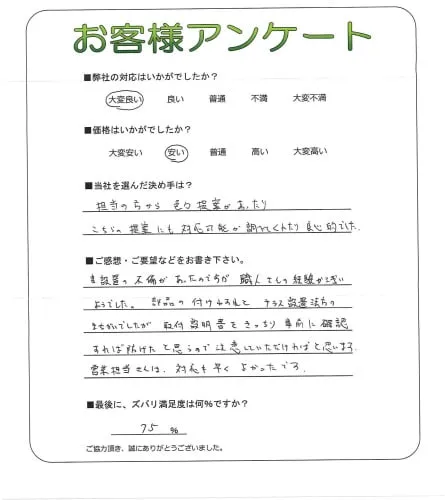 お客様アンケート
■弊社の対応はいかがでしたか?
大変良い 良い 普通 不満 大変不満
■価格はいかがでしたか?
大変安い 安い 普通 高い 大変高い
■当社を選んだ決め手は?
担当の方から 色々提案があったり
こちらの提案にも対応可能か調べてくれたり良心的でした.
■ご感想・ご要望などをお書き下さい。
設置の不備があったのですが 職人さんの経験が浅い
ようでした。部品の付け忘れと テラス設置法方の
まちがいでしたが 取付説明書をきっちり事前に確認
すれば防げたと思うので注意していただければと思います.
営業担当さんは、対応も早く よかったです.
■最後に、ズバリ満足度は何%ですか?
75 %
ご協力頂き、誠にありがとうございました。